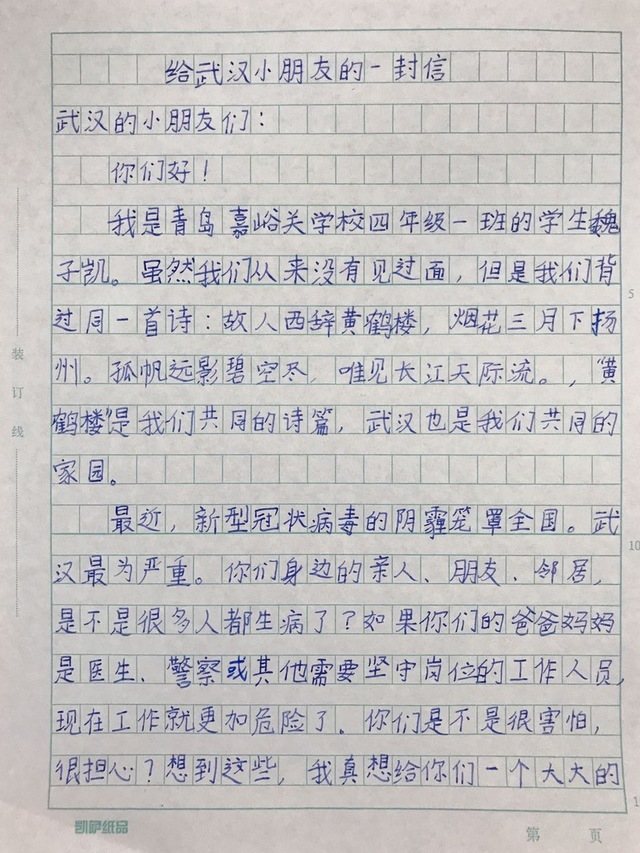 给武汉小朋友的一封信
武汉的小朋友们：
你们好！
我是青岛嘉峪关学校四年级一班的学生魏
子凯。虽然我们从来没有见过面，但是我们背
过同一首诗：故人西辞黄鹤楼，烟花三月下扬
州。孤帆远影碧空尽，唯见长江天际流。，“黄
鹤楼”是我们共同的诗篇，武汉也是我们共同的
家园。
最近，新型冠状病毒的阴霾笼罩全国。武
汉最为严重。你们身边的亲人、朋友、邻居，
是不是很多人都生病了？如果你们的爸爸妈妈
是医生、警察或其他需要坚守岗位的工作人员，
现在工作就更加危险了。你们是不是很害怕，
很担心？想到这些，我真想给你们一个大大的
装订线
5
10
1
凯萨纸品
第 页